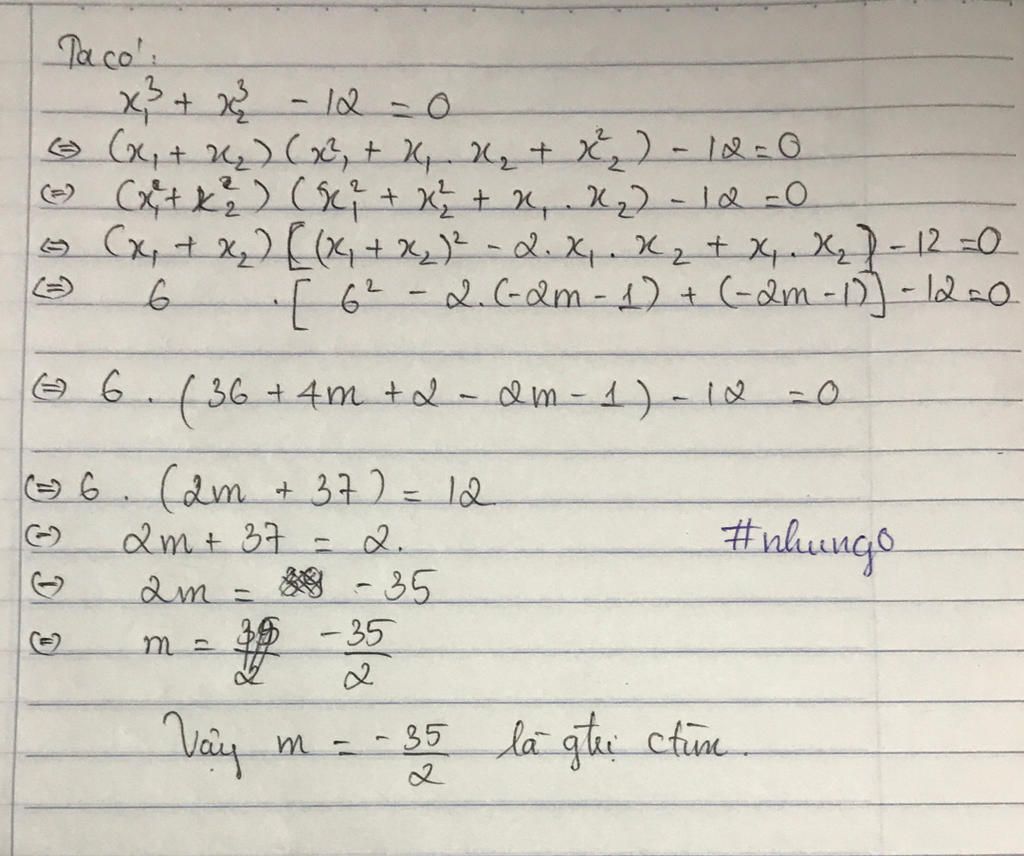 Ta có:
x₁³ + x₂³ - 12 = 0
⇔ (x₁ + x₂)(x²₁ + x₁ . x₂ + x²₂) - 12 = 0
⇔ (x₁² + x₂²)(x₁² + x₂² + x₁ . x₂) - 12 = 0
⇔ (x₁ + x₂)[(x₁ + x₂)² - 2. x₁ . x₂ + x₁ . x₂] - 12 = 0
⇔ 6 . [6² - 2.(-2m - 1) + (-2m - 1)] - 12 = 0
⇔ 6 . (36 + 4m + 2 - 2m - 1) - 12 = 0
⇔ 6 . (2m + 37) = 12
⇔ 2m + 37 = 2.
#nhung0
⇔ 2m = - 35
⇔ m = -35/2
Vậy m = -35/2 là gtrị ctìm.